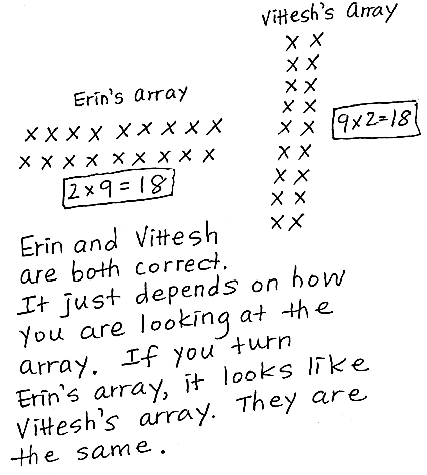 Erin's array
X X X X X X X X X
X X X X X X X X X
2 x 9 = 18
Vittesh's Array
X X
X X
X X
X X
X X
X X
X X
X X
X X
9x2=18
Erin and Vittesh
are both correct.
It just depends on how
you are looking at the
array. If you turn
Erin's array, it looks like
Vittesh's array. They are
the same.